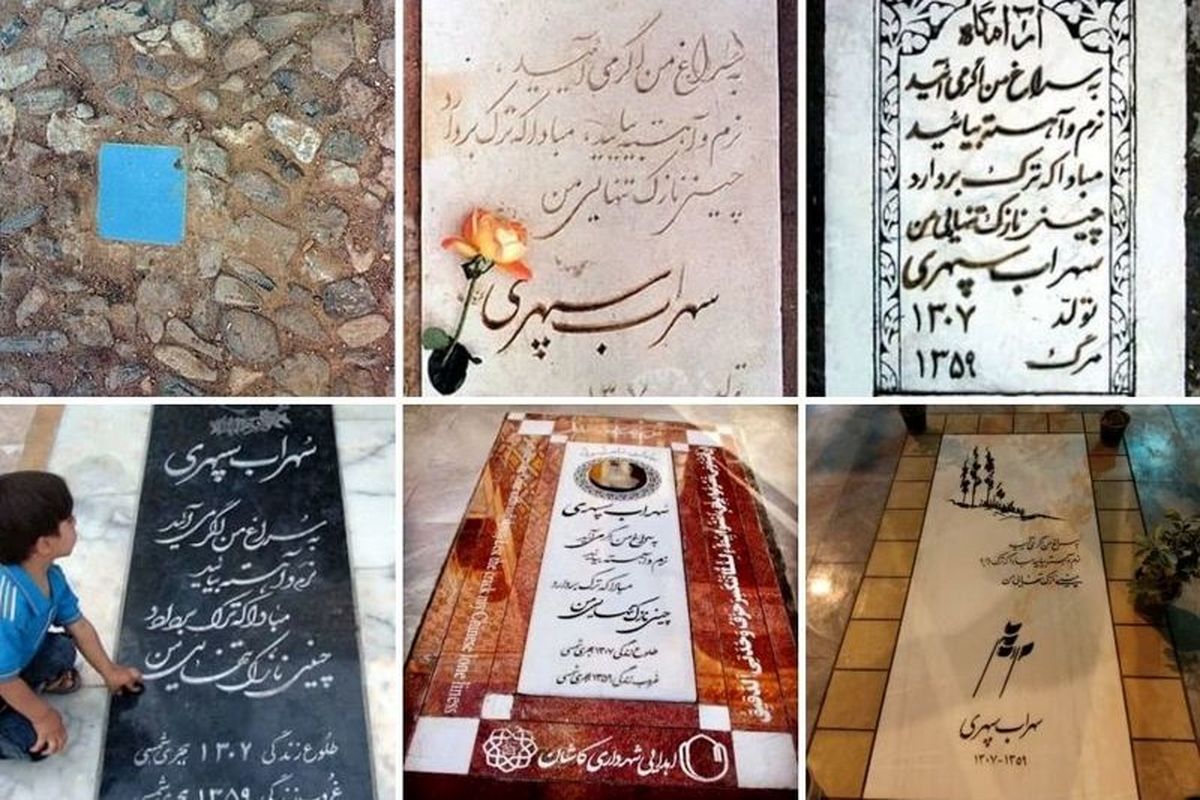 به سراغ من اگر می‌آیید،
نرم و آهسته بیایید، مبادا که ترک بردارد
چینی نازک تنهایی من
سهراب سپهری
تولد
آرامگاه
به سراغ من اگر می‌آئید
نرم و آهسته بیائید
مبادا که ترک بردارد
چینی نازک تنهایی من
سهراب سپهری
تولد ۱۳۰۷
مرگ ۱۳۵۹
سهراب سپهری
به سراغ من اگر می‌آئید
نرم و آهسته بیائید
مبادا که ترک بردارد
چینی نازک تنهایی من
طلوع زندگی ۱۳۰۷ هجری شمسی
غروب زندگی ۱۳۵۹ هجری شمسی
سهراب سپهری
به سراغ من اگر می‌آئید
نرم و آهسته بیائید
مبادا که ترک بردارد
چینی نازک تنهایی من
طلوع زندگی ۱۳۰۷ هجری شمسی
غروب زندگی ۱۳۵۹ هجری شمسی
اهدایی شهرداری کاشان
به سراغ من اگر می‌آیید
نرم و آهسته بیایید مبادا که ترک بردارد
چینی نازک تنهایی من
سهراب سپهری
۱۳۰۷-۱۳۵۹